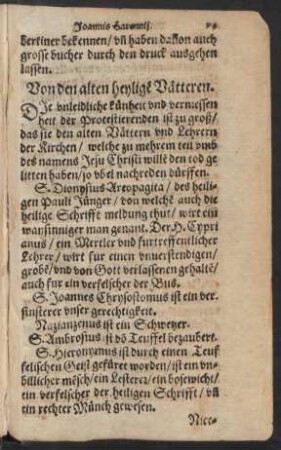 Joannis Hatennij.
berliner bekennen / vñ haben dauon auch
grosse bucher durch den druck ausgehen
lassen.
Von den alten heyligē Vätteren.
DJe vnleidliche künheit vnd vermessen
heit der Protestierenden ist zu groß /
das sie den alten Vättern vnd Lehrern
der Kirchen / welche zu mehrem teil vmb
des namens Jesu Christi willē den tod ge
litten haben / so vbel nachreden dürffen.
S. Dionysius Areopagita / des heili-
gen Pauli Jünger / von welchē auch die
heilige Schrifft meldung thut / wirt ein
wansinniger man genant. Der H. Cypri
anus / ein Mertler vnd furtreffentlicher
Lehrer / wirt fur einen vnuerstendigen /
grobē / vnd von Gott verlassenen gehaltē /
auch fur ein verfelscher der Bus.
S. Joannes Chrysostomus ist ein ver-
finsterer vnser gerechtigkeit.
Nazianzenus ist ein Schwetzer.
S. Ambrosius ist vō Teuffel bezaubert.
S. Hieronymus ist durch einen Teuf
felischen Geist gefüret worden / ist ein vn-
billicher mēsch / ein Lesterer / ein bosewicht /
ein verfelscher der heiligen Schrifft / vñ
ein rechter Münch gewesen.
Nice-